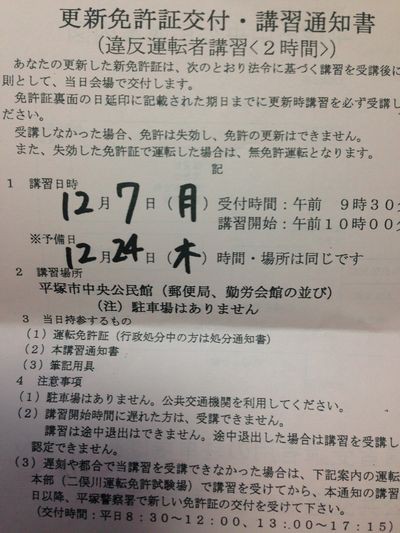 更新免許証交付・講習通知書
（違反運転者講習<２時間>）
あなたの更新した新免許証は、次のとおり法令に基づく講習を受講後に
則として、当日会場で交付します。
免許証裏面の日延印に記載された期日までに更新時講習を必ず受講し
ださい。
受講しなかった場合、免許は失効し、免許の更新はできません。
また、失効した免許証で運転した場合は、無免許運転となります。
記
1 講習日時
12月7日（月）受付時間：午前 9時30分
講習開始：午前10時00分
※予備日
12月24日（木）時間・場所は同じです
2 講習場所
平塚市中央公民館（郵便局、勤労会館の並び）
（注）駐車場はありません
3 当日持参するもの
（1）運転免許証（行政処分中の方は処分通知書）
（2）本講習通知書
（3）筆記用具
4 注意事項
（1）駐車場はありません。公共交通機関を利用してください。
（2）講習開始時間に遅れた方は、受講できません。
講習は途中退出はできません。途中退出した場合は講習を受講し
認定できません。
（3）遅刻や都合で当講習を受講できなかった場合は、下記案内の運転
本部（二俣川運転免許試験場）で講習を受けてから、本通知の講習
日以降、平塚警察署で新しい免許証の交付を受けて下さい。
（交付時間：平日8：30～12：00、13：00～17：15）